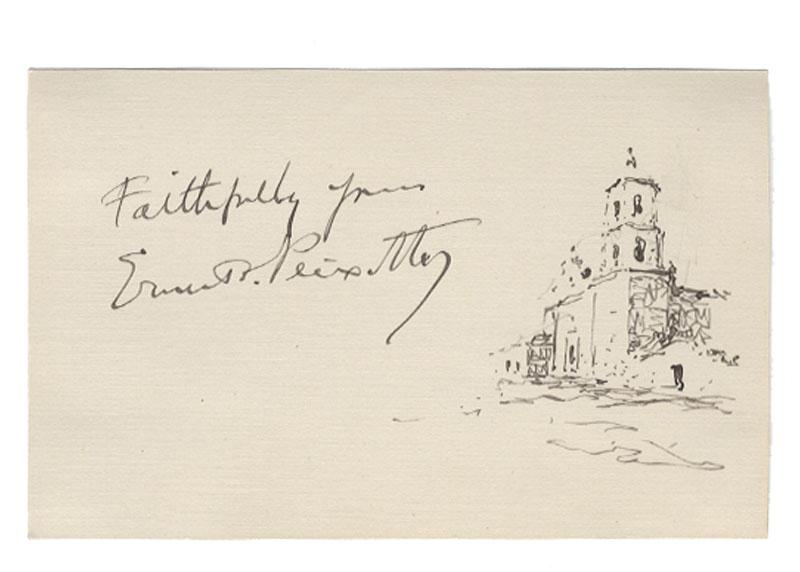 Faithfully yours
Ernest Peixotto